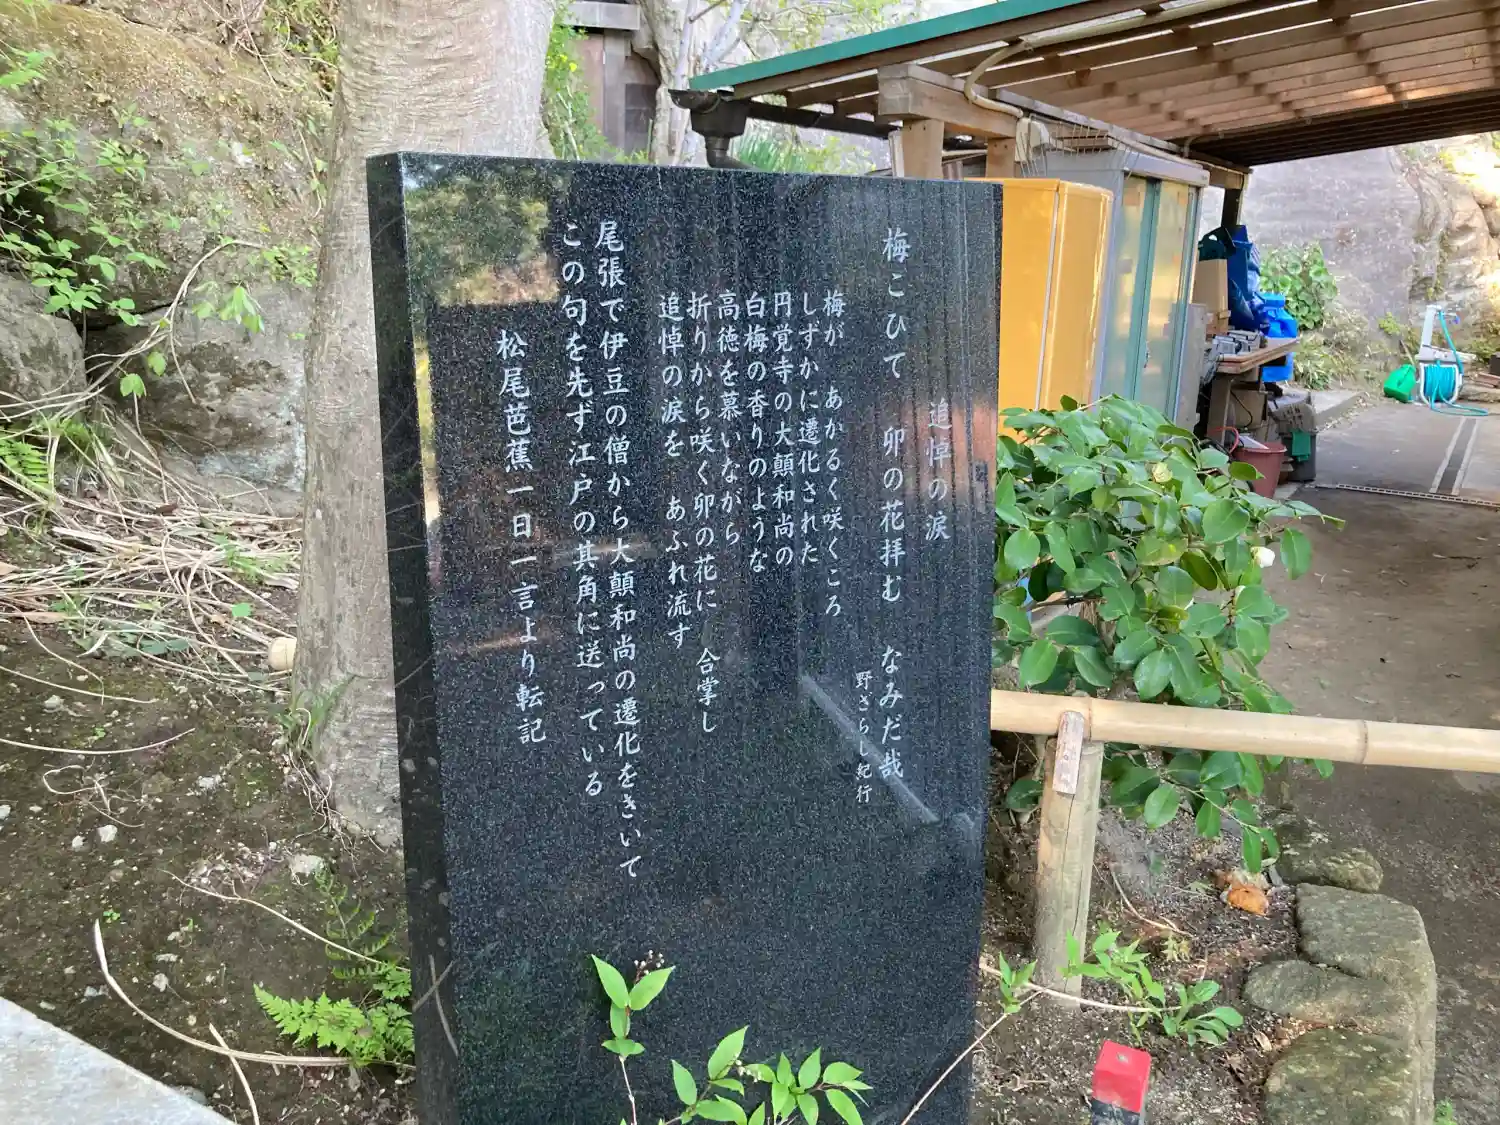 追悼の涙
梅こひて 卯の花拝む なみだ哉
野ざらし紀行
梅が あかるく咲くころ
しずかに遷化された
円覚寺の大顛和尚の
白梅の香りのような
高徳を慕いながら
折りから咲く卯の花に 合掌し
追悼の涙を あふれ流す
尾張で伊豆の僧から大顛和尚の遷化をきいて
この句を先ず江戸の其角に送っている
松尾芭蕉一日一言より転記